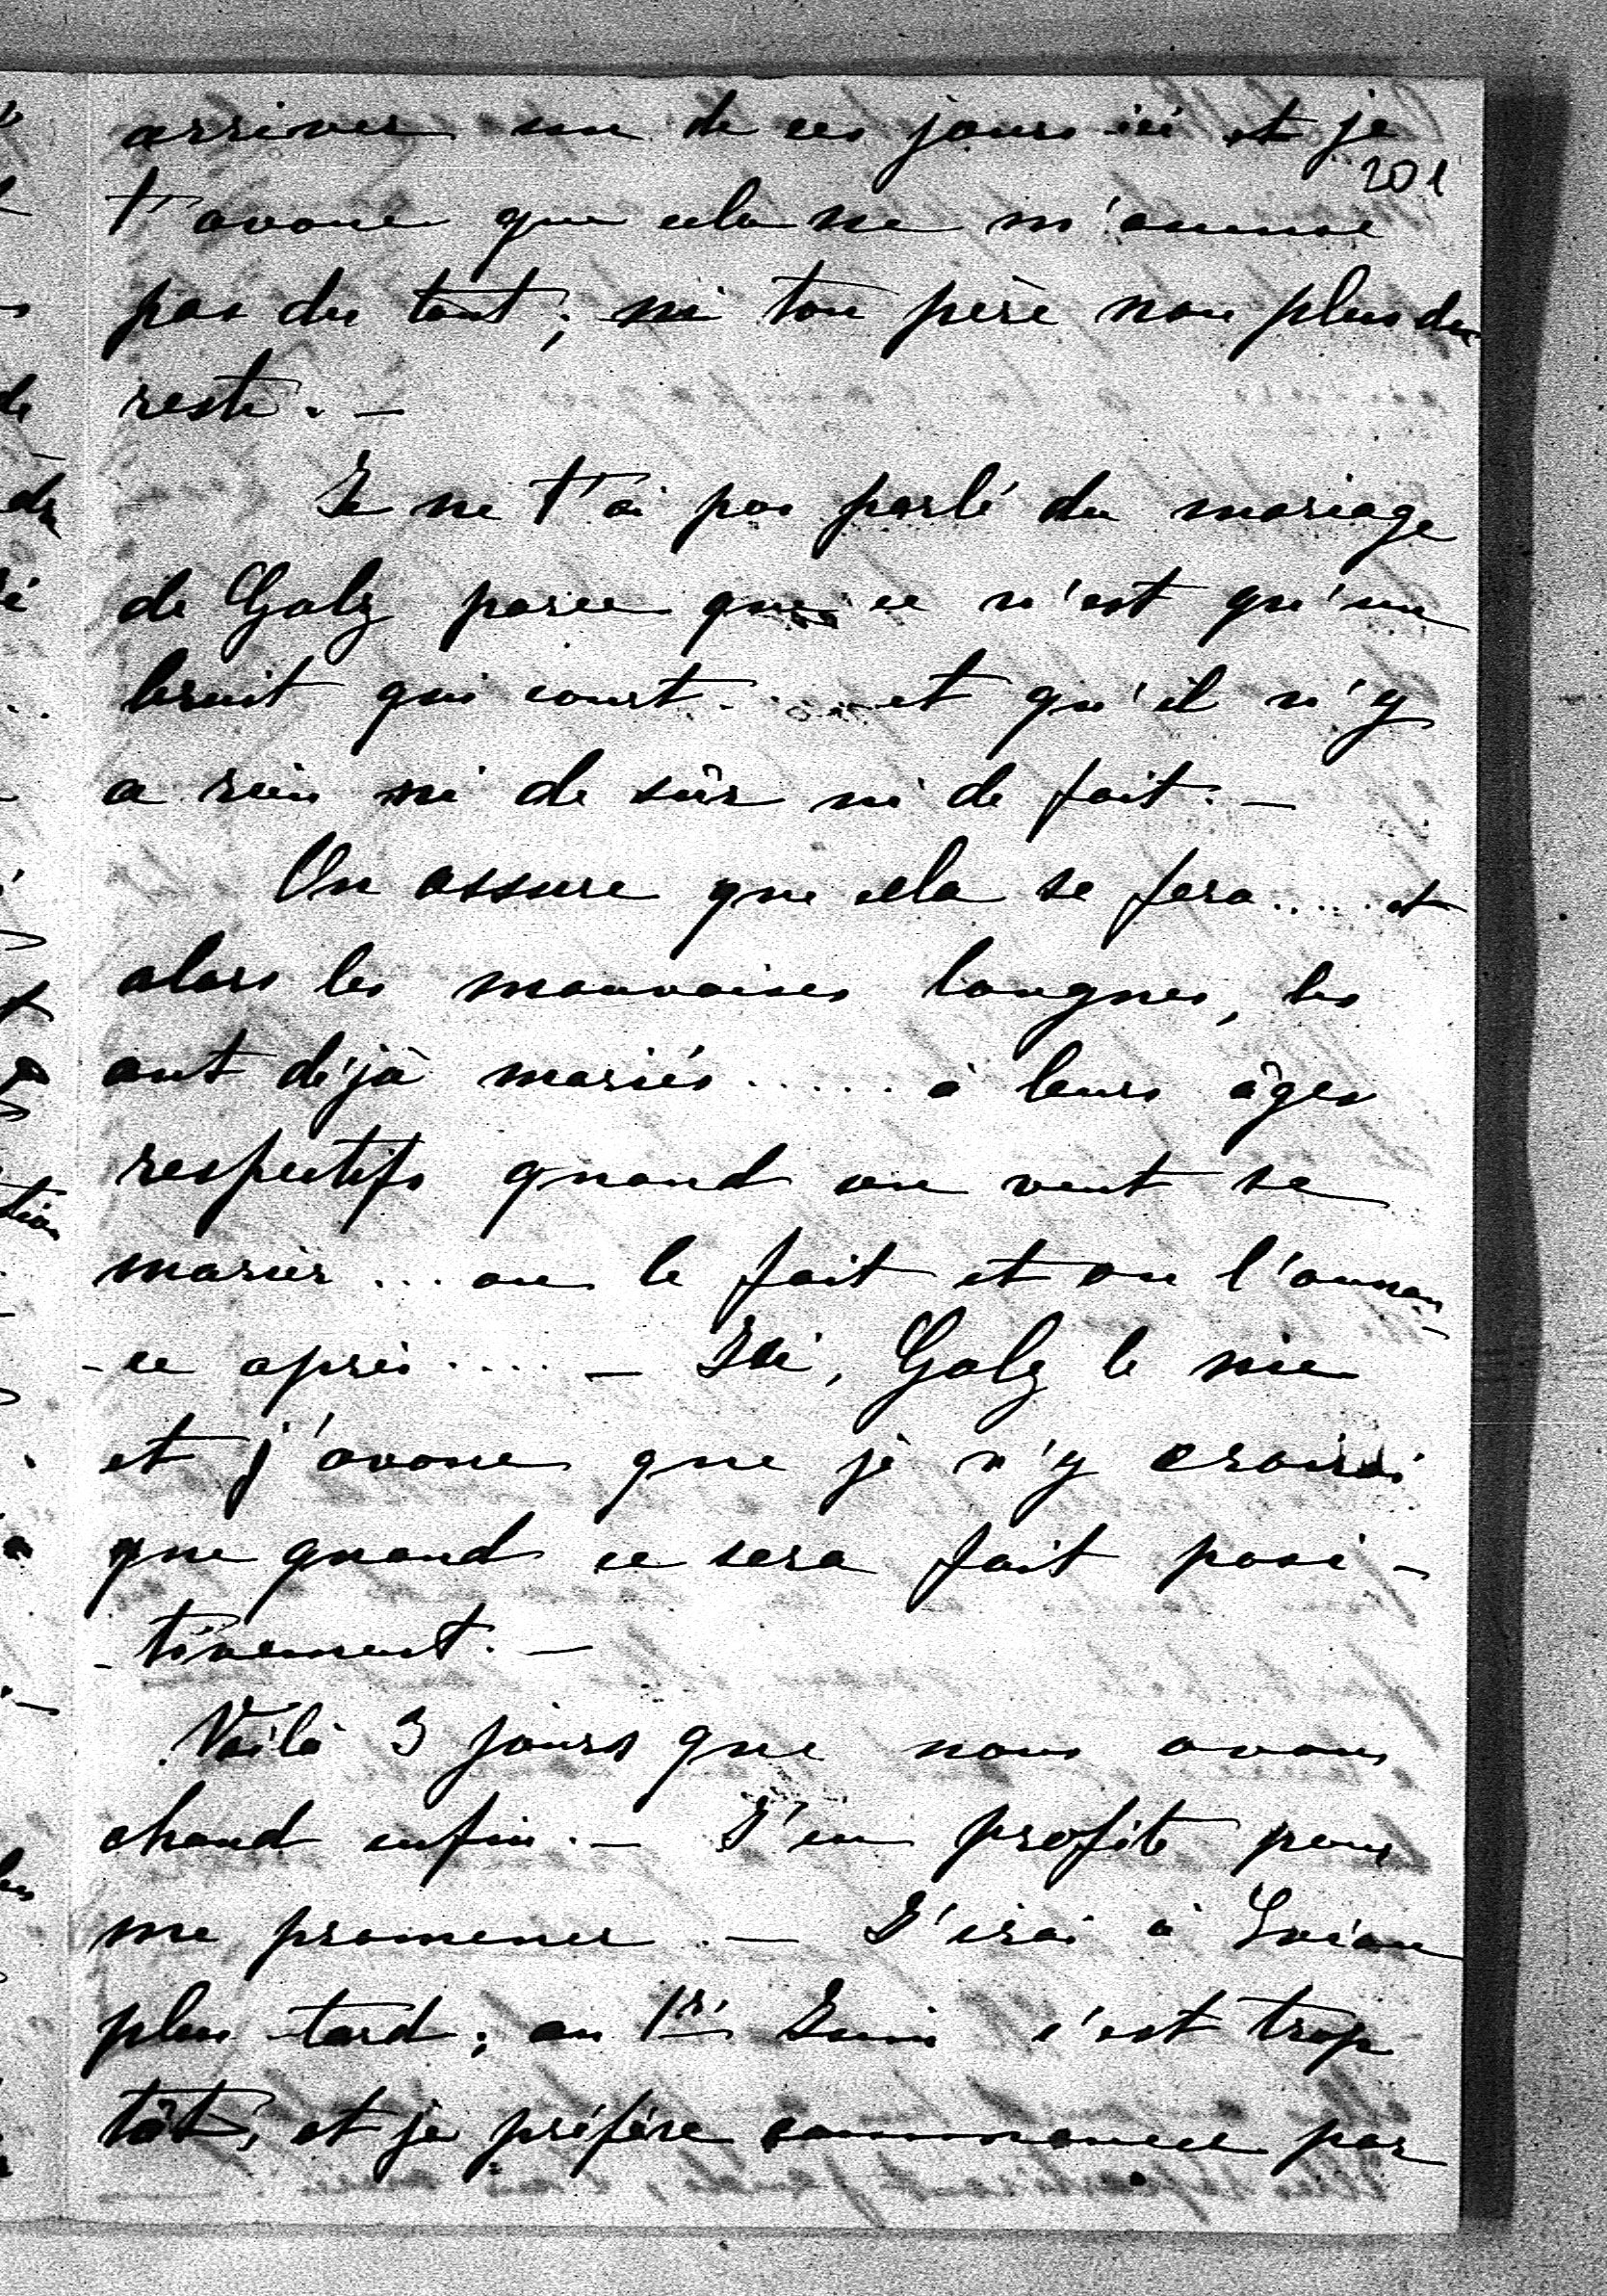 arriver un de ces jours ici et je
201
t'avoue que cela ne m'amuse
pas du tout ; ni ton père non plus du
reste. —
Je ne t'ai pas parlé du mariage
de Galz parce que ce n'est qu'un
bruit qui court. et qu'il n'y
a rien ni de sûr ni de fait. —
On assure que cela se fera ..... et
alors les mauvaises langues, les
ont déjà mariés ..... à leurs âges
respectifs quand on veut se
marier ... on le fait et on l'annon-
-ce après .... — Ici, Galz le nie
et j'avoue que je n'y croirai
que quand ce sera fait posi-
-tivement. —
Voilà 3 jours que nous avons
chaud enfin. — J'en profite pour
me promener. — J'irai à Evian
plus tard ; au 1er Juin c'est trop
tôt, et je préfère commencer par